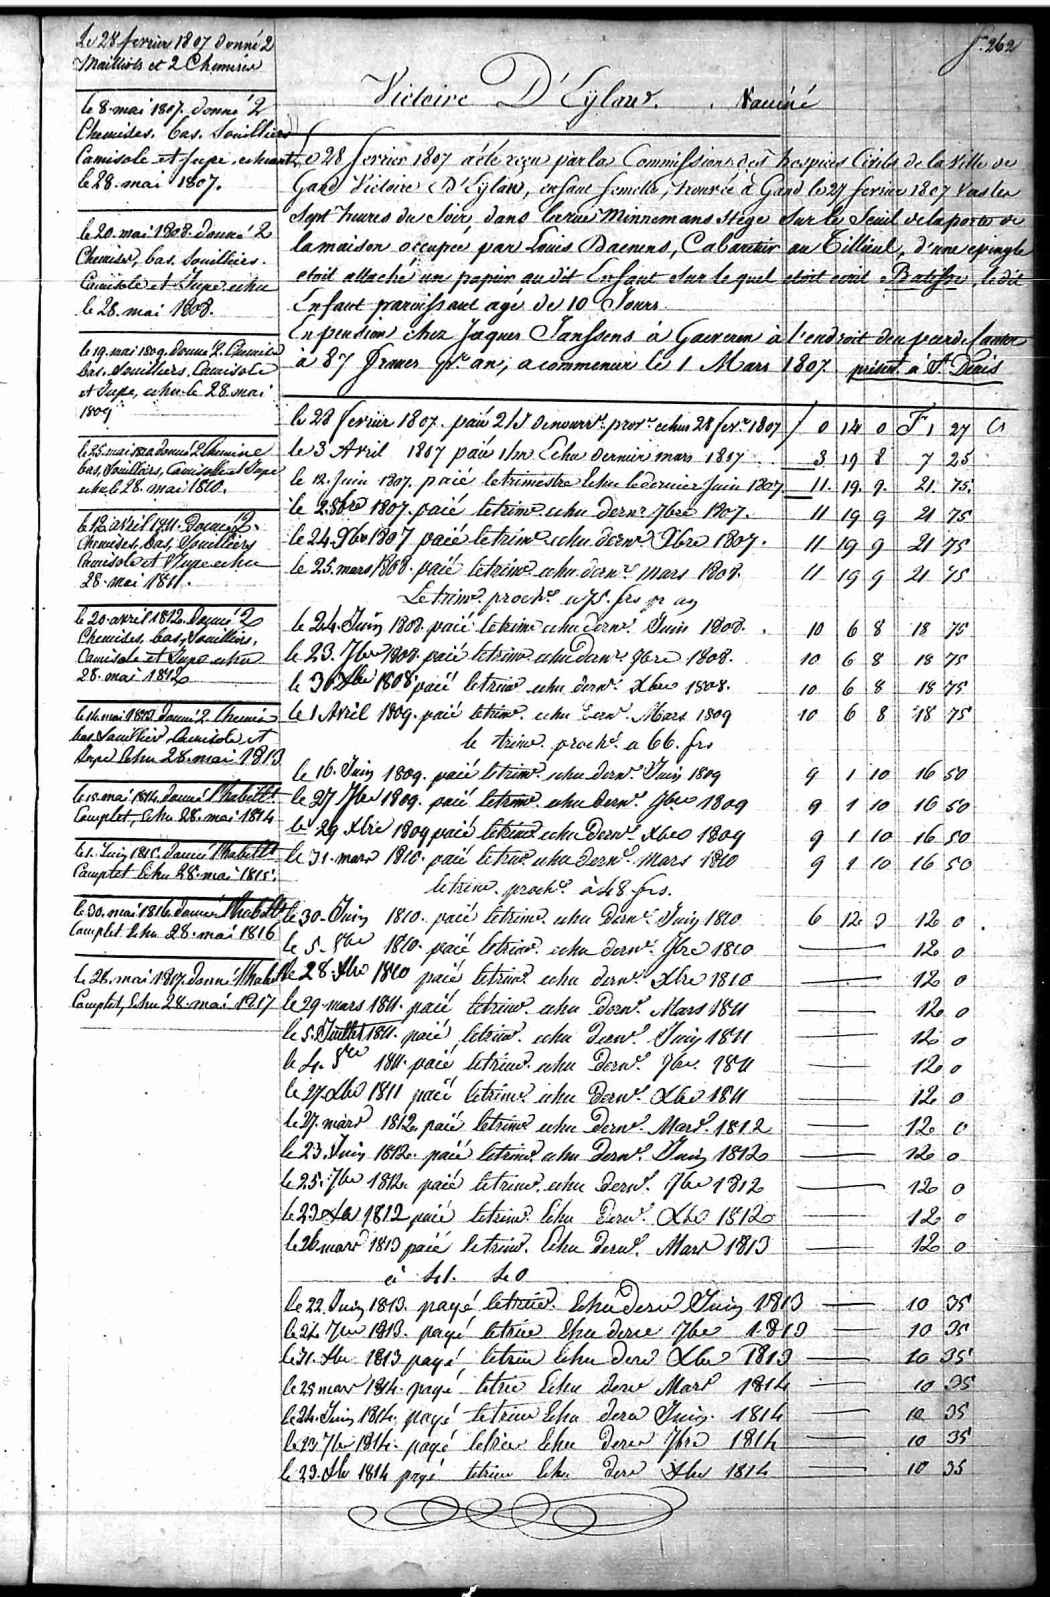 fo. 262
Victoire D'Eylau. Vacciné
Le 28 fevrier 1807 donné 2
Maillots et 2 Chemises
le 8 mai 1807. donné 2
Chemises, bas, Souilliers
Camisole et Jupe, echeant
le 28. mai 1807.
le 20. mai 1808. donné 2
Chemises, bas, Souilliers.
Camisole et Jupe echu
le 28. mai 1808.
le 19. mai 1809. donné 2. Chemises
bas, Souilliers, Camisole
et Jupe, echu le 28. mai
1809
le 25. mai 1810 donné 2 Chemises
bas, Souilliers, Camisole et Jupe
echu le 28. mai 1810.
le 12. avril 1811. Donné 2.
Chemises, bas, Souilliers
Camisole et Jupe echu
28. mai 1811.
le 20. avril 1812. Donné 2
Chemises, bas, Souilliers,
Camisole et Jupe echu
28. mai 1812
le 14. mai 1813 donné 2 Chemises
bas Souilliers Camisole et
Jupe Echu 28. mai 1813
le 18. mai 1814. donné l'habillt.
Complet, Echu 28. mai 1814
le 1. Juin 1815. donné l'habillt.
Complet Echu 28. mai 1815.
le 30. mai 1816 donné l'habillt
Complet Echu 28. mai 1816
le 26. mai 1817. donné l'habillt
Complet, Echu 28. mai 1817
Le 28 fevrier 1807 a été reçu par la Commission des hospices Civils de la Ville de
Gand Victoire D'Eylau, enfant femelle, trouvée à Gand le 27 fevrier 1807 vers les
Sept heures du Soir, dans la rue Minnemans Stege sur le Seuil de la porte de
la maison occupée par Louis Daenens, Cabaretier au Tilleul, d'une epingle
etoit attaché un papier au dit Enfant sur le quel etoit ecrit Batisse, le dit
Enfant paroissant agé de 10 Jours.
En pension chez Jaques Janssens à Gaverem à l'endroit
à 87 francs pr. an, a commencer le 1 Mars 1807 présent à St. Denis
le 28 fevrier 1807. paié 2 1/2 de nourre. prov. echus 28 fevr. 1807 f 0 14 0 F 1 27 Cs
le 3 Avril 1807 paié 1/m Echu dernier mars 1807 3 19 8 7 25
le 12. Juin 1807. paié le trimestre Echu le dernier Juin 1807 11. 19. 9. 21 75.
le 2. 8bre 1807. paié le trim. echu dernr. 7bre 1807. 11 19 9 21 75
le 24. Xbre 1807 paié le trim. echu dernr. Xbre 1807. 11 19 9 21 75
le 25. mars 1808. paié le trim. echu dernr. mars 1808. 11 19 9 21 75
Le trim. proche. a 75. frs pr an
le 24. Juin 1808. paié le trim echu dernr. Juin 1808. 10 6 8 18 75
le 23. 7bre 1808. paié le trim. echu dernr. 7bre 1808. 10 6 8 18 75
le 30 Xbre 1808. paié le trim. echu dernr. Xbre 1808. 10 6 8 18 75
le 1 Avril 1809. paié le trim. echu dernr. Mars 1809 10 6 8 18 75
le trim. proche. a 66. frs
le 16. Juin 1809. paié le trim. echu dernr. Juin 1809 9 1 10 16 50
le 27 7bre 1809. paié le trim. echu dernr. 7bre 1809 9 1 10 16 50
le 29 Xbre 1809 paié le trim. echu dernr. Xbre 1809 9 1 10 16 50
le 31. mars 1810. paié le trim echu dernr. Mars 1810 9 1 10 16 50
le trim. proche. à 48 frs.
le 30. Juin 1810. paié le trim. echu dernr. Juin 1810 6 12 3 12 0
le 5. 8bre 1810. paié le trim. echu dernr. 7bre 1810 12 0
le 28. Xbre 1810 paié le trim. echu dernr. Xbre 1810 12 0
le 29. mars 1811. paié le trim. echu dernr. Mars 1811 12 0
le 5. Juillet 1811. paié le trim. echu dernr. Juin 1811 12 0
le 4. 8bre 1811. paié le trim. echu dernr. 7bre. 1811 12 0
le 27 Xbre 1811 paié le trim. echu dernr. Xbre 1811 12 0
le 27. mars 1812. paié le trim. echu dernr. Mars. 1812 12 0
le 23. Juin 1812. paié le trim. echu dernr. Juin 1812 12 0
le 25. 7bre 1812. paié le trim. echu dernr. 7bre 1812 12 0
le 23 Xbre 1812 paié le trim. Echu dernr. Xbre 1812 12 0
le 26 mars 1813 paié le trim. Echu dernr. Mars 1813 12 0
à 41. 40
le 22. Juin 1813. payé le trim. Echu dern Juin 1813 10 35
le 24. 7bre 1813. payé le trim Echu dern 7bre 1813 10 35
le 31. Xbre 1813 payé le trim Echu dern Xbre 1813 10 35
le 25 mars 1814. payé le trim Echu dern Mars 1814 10 35
le 24. Juin 1814. payé le trim Echu dern Juin. 1814 10 35
le 23 7bre 1814. payé le trim Echu dern 7bre 1814 10 35
le 23. Xbre 1814 payé le trim Echu dern Xbre 1814 10 35